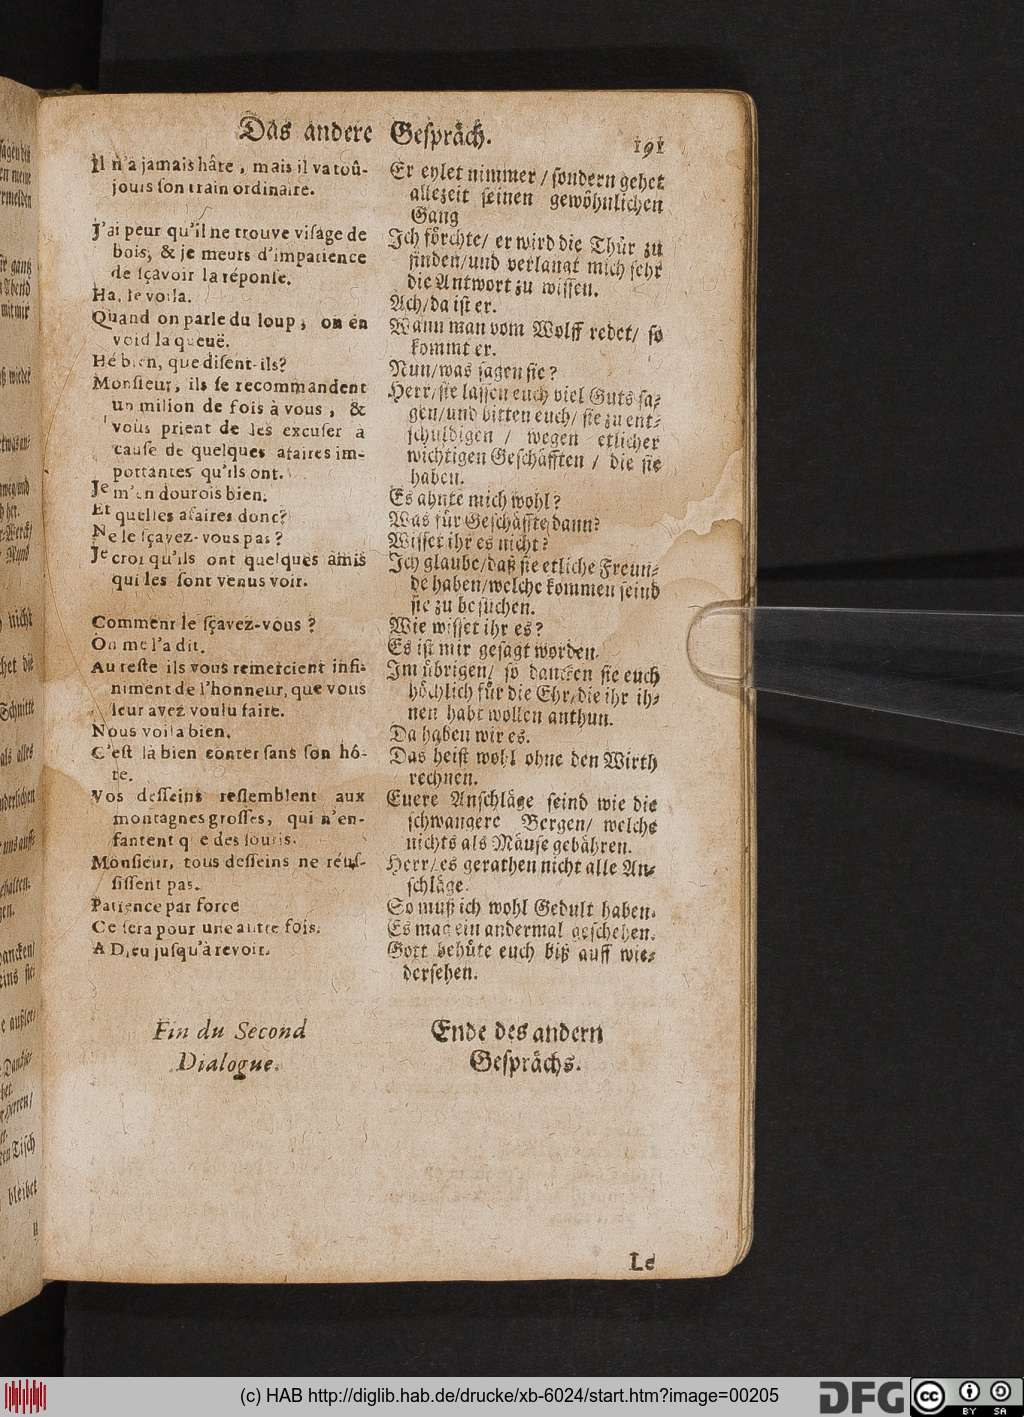 Das andere Gespräch. 191
Il n'a jamais hâte, mais il va toû-
jours ſon train ordinaire.
J'ai peur qu'il ne trouve viſage de
bois, & je meurs d'impatience
de ſçavoir la réponſe.
Ha, le voila.
Quand on parle du loup, on en
void la queuë.
Hé bien, que diſent-ils?
Monſieur, ils ſe recommandent
un milion de fois à vous, &
vous prient de les excuſer a
cauſe de quelques afaires im-
portantes qu'ils ont.
Je m'en dourois bien.
Et quelles afaires donc?
Ne le ſçavez-vous pas?
Je croi qu'ils ont quelques amis
qui les ſont venus voir.
Comment le ſçavez-vous?
On me l'a dit.
Au reſte ils vous remercient infi-
niment de l'honneur, que vous
leur avez voulu faire.
Nous voila bien.
C'eſt là bien conter ſans ſon hô-
te.
Vos deſſeins reſſemblent aux
montagnes groſſes, qui n'en-
fantent que des ſouris.
Monſieur, tous deſſeins ne réuſ-
ſiſſent pas.
Patience par force
Ce ſera pour une autre fois.
A Dieu juſqu'à revoir.
Fin du Second
Dialogue.
Er eylet nimmer / ſondern gehet
allezeit ſeinen gewöhnlichen
Gang
Ich förchte/ er wird die Thür zu
finden/und verlangt mich ſehr
die Antwort zu wiſſen.
Ach/da iſt er.
Wann man vom Wolff redet/ ſo
kommt er.
Nun/was ſagen ſie?
Herr/ſie laſſen euch viel Guts ſa-
gen/und bitten euch/ ſie zu ent-
ſchuldigen / wegen etlicher
wichtigen Geſchäfften / die ſie
haben.
Es ahnte mich wohl?
Was für Geſchäffte dann?
Wiſſet ihr es nicht?
Ich glaube/daß ſie etliche Freun-
de haben/welche kommen ſeind
ſie zu beſuchen.
Wie wiſſet ihr es?
Es iſt mir geſagt worden.
Im übrigen/ ſo dancken ſie euch
höchlich für die Ehr/die ihr ih-
nen habt wollen anthun.
Da haben wir es.
Das heiſt wohl ohne den Wirth
rechnen.
Euere Anſchläge ſeind wie die
ſchwangere Bergen/ welche
nichts als Mäuſe gebähren.
Herr/es gerathen nicht alle An-
ſchläge.
So muß ich wohl Gedult haben.
Es mag ein andermal geſchehen.
Gott behüte euch biß auff wie-
derſehen.
Ende des andern
Geſprächs.
Le
(c) HAB http://diglib.hab.de/drucke/xb-6024/start.htm?image=00205
DFG
cc BY SA